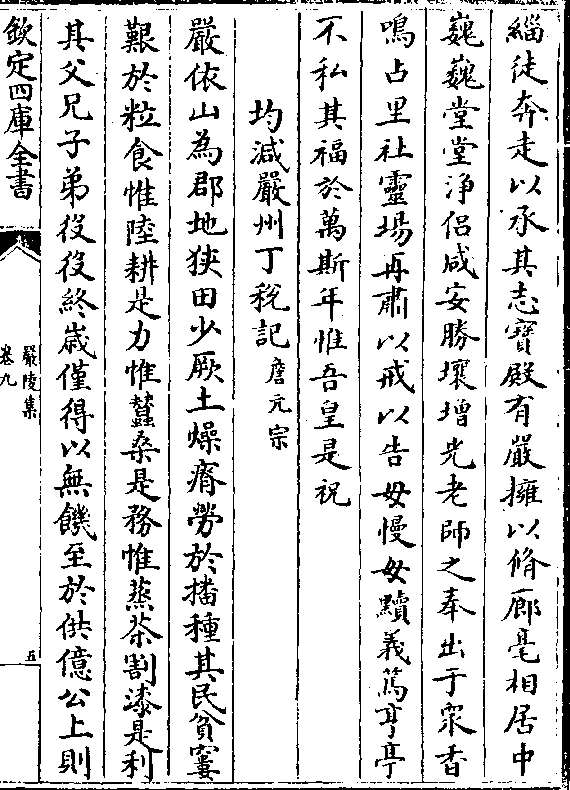 緇徒奔走以承其志寳殿有嚴擁以脩廊毫相居中
巍巍堂堂浄侣咸安勝壤增光老師之奉出于衆香
鳴占里社靈塲再肅以戒以告毋慢毋黷義篤亨亭
不私其福於萬斯年惟吾皇是祝
均減嚴州丁税記 詹元宗
嚴依山為郡地狹田少厥土燥瘠勞於播種其民貧窶
艱於粒食惟陸耕是力惟蠶桑是務惟蒸茶割漆是利
其父兄子弟役役終嵗僅得以無饑至於供億公上則
欽定四庫全書
嚴陵集
卷九
五